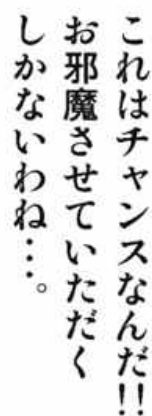 これはチャンスなんだ!!
お邪魔させていただく
しかないわね…。